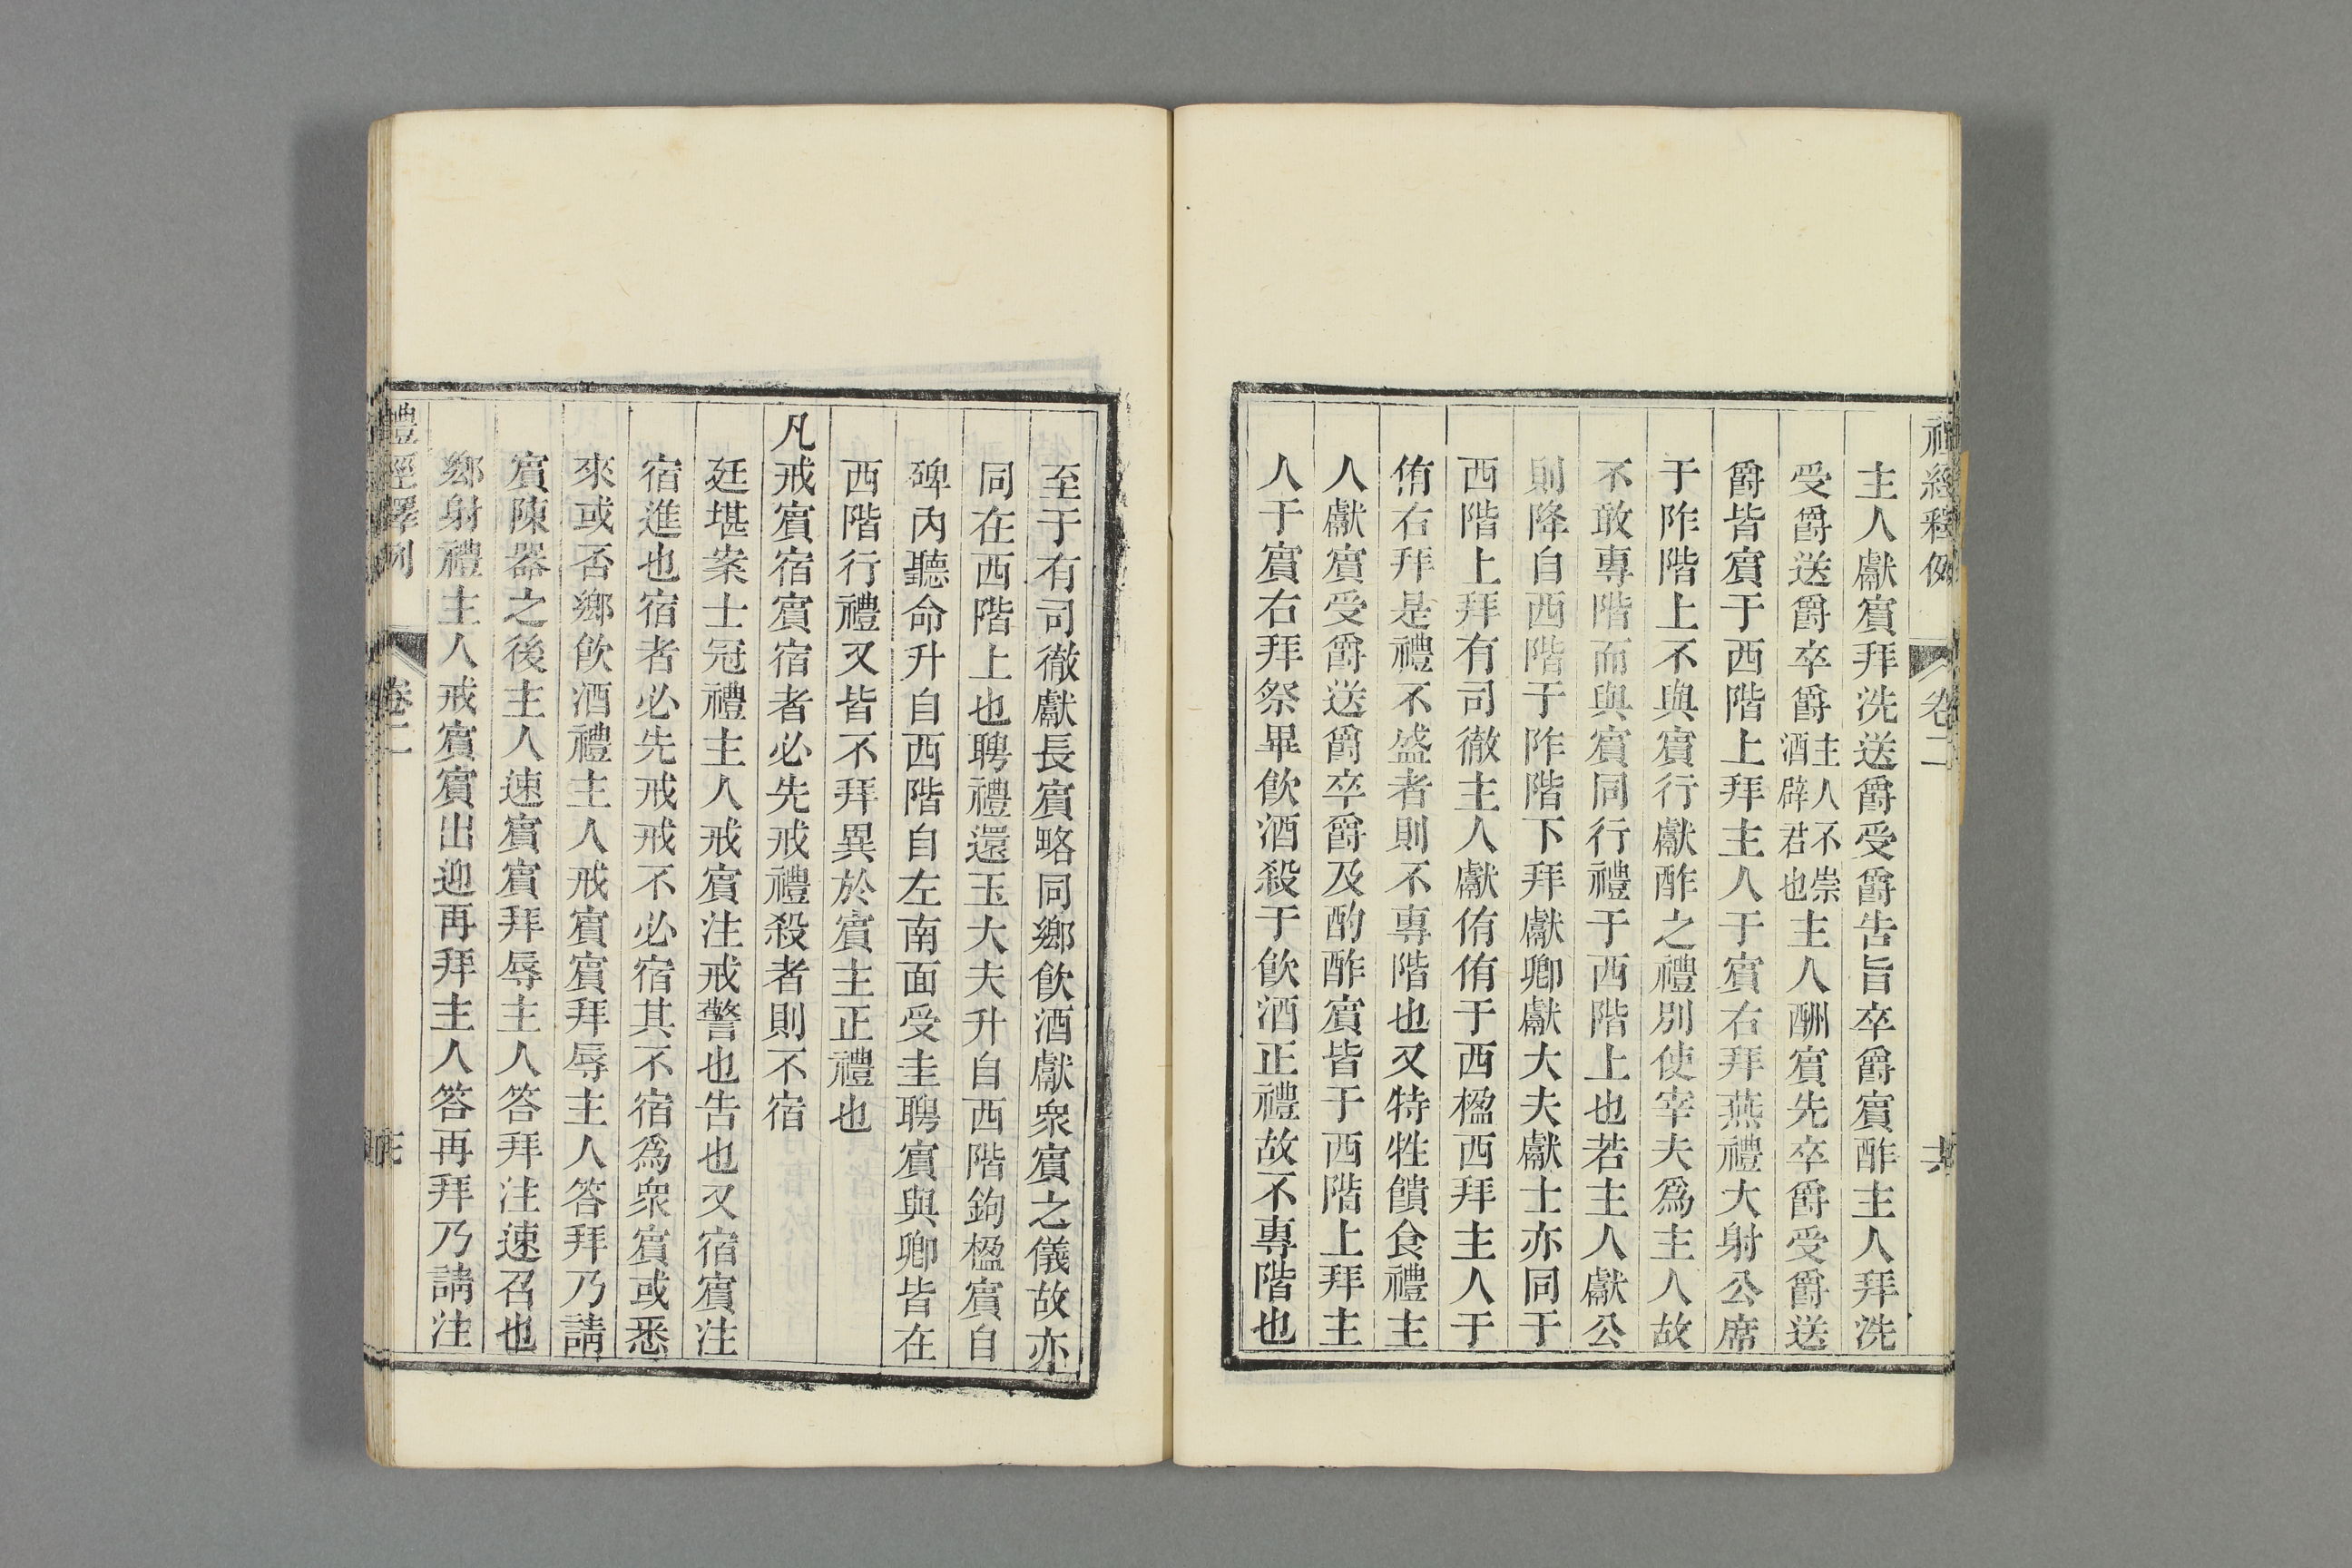 禮經釋例 卷二
主人獻賓拜洗送爵受爵告旨卒爵賓酢主人拜洗
受爵送爵卒爵主人不崇酒辟君也主人酬賓先卒爵受爵送
爵皆賓于西階上拜主人于賓右拜燕禮大射公席
于阼階上不與賓行獻酢之禮別使宰夫爲主人故
不敢專階而與賓同行禮于西階上也若主人獻公
則降自西階于阼階下拜獻卿獻大夫獻士亦同于
西階上拜有司徹主人獻侑侑于西楹西拜主人于
侑右拜是禮不盛者則不專階也又特牲饋食禮主
人獻賓受爵送爵卒爵及酌酢賓皆于西階上拜主
人于賓右拜祭畢飲酒殺于飲酒正禮故不專階也
至于有司徹獻長賓略同鄉飲酒獻衆賓之儀故亦
同在西階上也聘禮還玉大夫升自西階鉤楹賓自
碑內聽命升自西階自左南面受圭聘賓與卿皆在
西階行禮又皆不拜異於賓主正禮也
凡戒賓宿賓宿者必先戒禮殺者則不宿
廷堪案士冠禮主人戒賓注戒警也告也又宿賓注
宿進也宿者必先戒戒不必宿其不宿爲衆賓或悉
來或否鄉飲酒禮主人戒賓賓拜辱主人答拜乃請
賓陳器之後主人速賓賓拜辱主人答拜注速召也
鄉射禮主人戒賓賓出迎再拜主人答再拜乃請注
禮經釋例 卷二